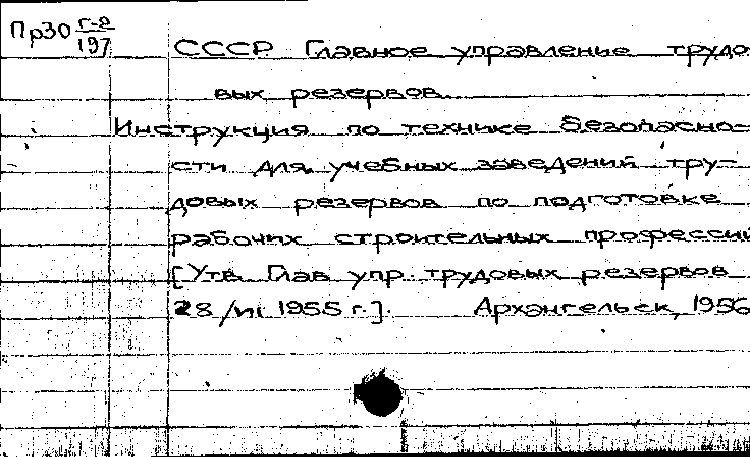 Пр30 г-2/197
СССР Главное управление трудо
вых резервов.
Инструкция по технике безопасно-
сти для учебных заведений тру-
довых резервов по подготовке
рабочих строительных профессий
[Утв. Глав упр. трудовых резервов
28/VI 1955 г.]. Архангельск, 1956